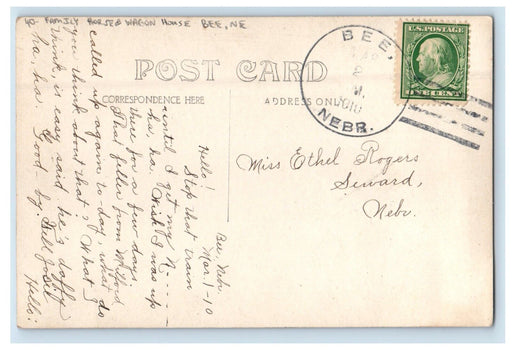 40- FAMILY HORSE & WAGON HOUSE BEE, NE
POST CARD
CORRESPONDENCE HERE
ADDRESS ONLY
BEE,
MAR
2
M.
1910
NEBR.
U.S. POSTAGE
ONE CENT
Miss Ethel Rogers
Seward,
Nebr.
Bee, Nebr.
Mar. 1-10
Hello!
Stop that train
until I get my N.....
ha, ha. Wish I was up
there for a few days.
That feller from Milford
called up again to-day, what do
you think about that? What I
think, is easy said he's daffy
ha, ha. Good-by.
Hello: